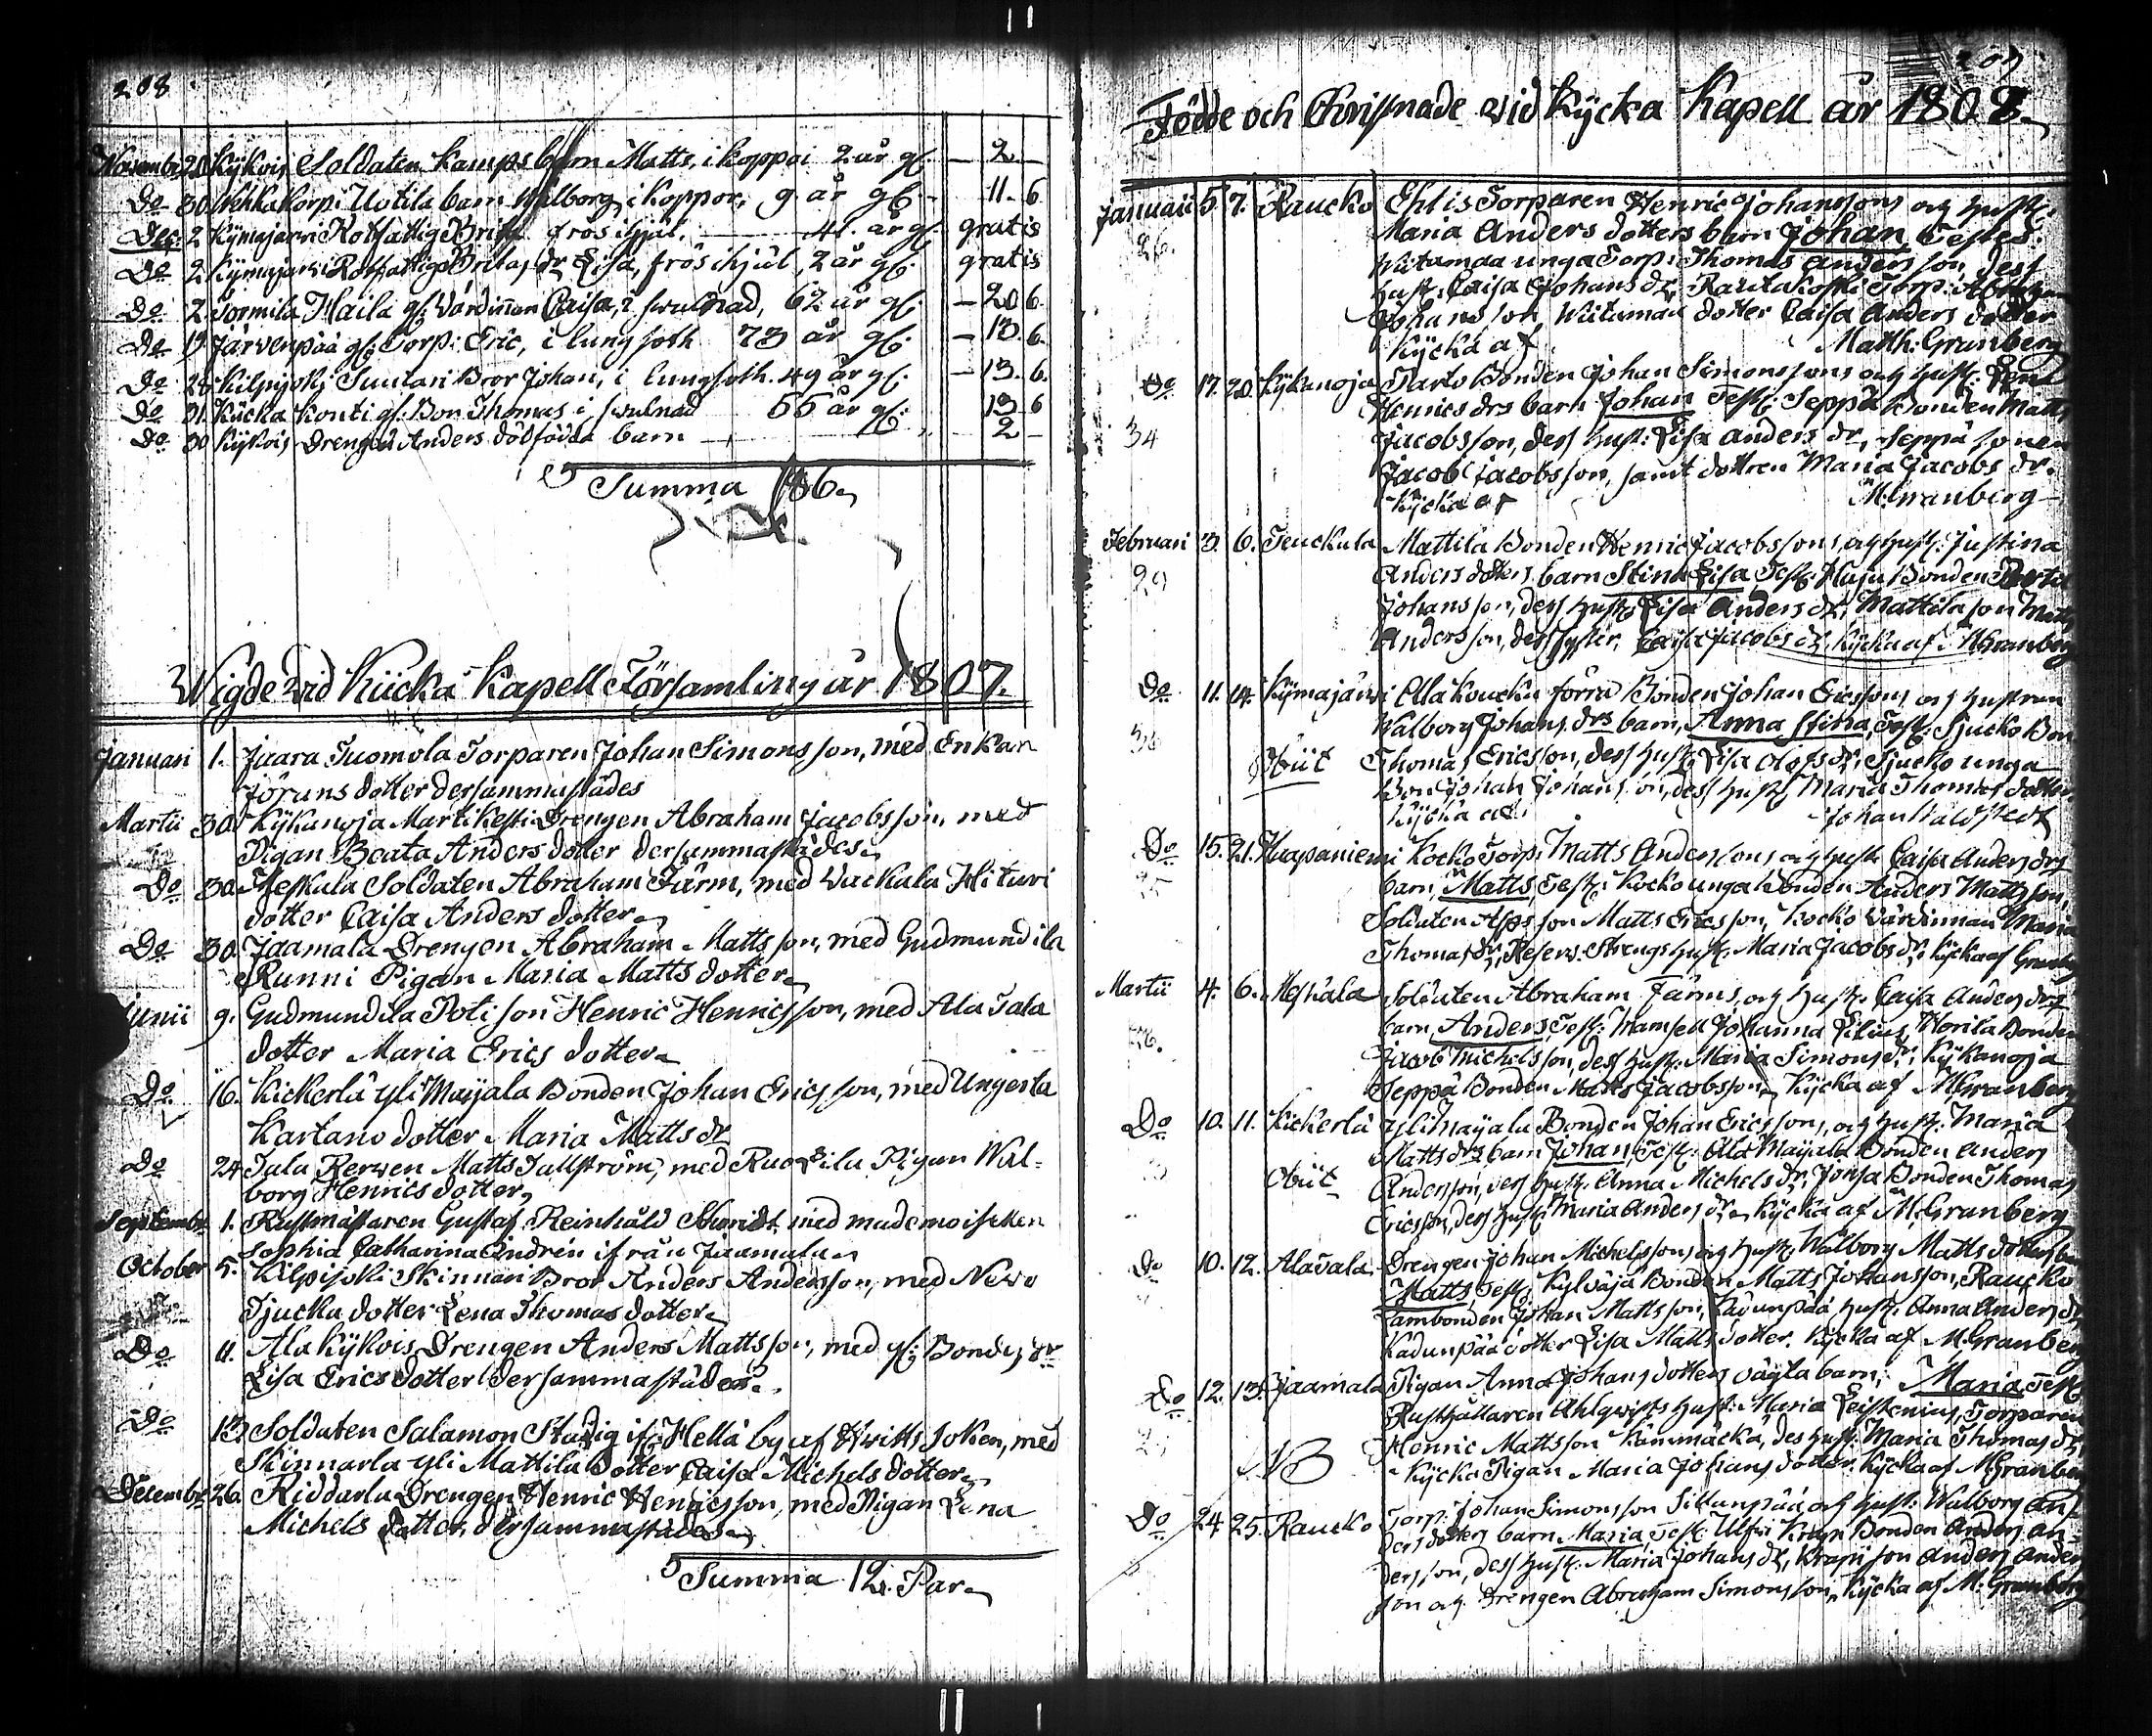 208
Novembr 20 Kykois Soldaten Kamps barn Matts, i koppoi 2 år gl. — 2. —
Do 30 Torp: Uotila barn Walborg i koppor, 9 år gl. - 11. 6
Dec: 2 Kymajarvi Rotfattig Brita frös ihjäl. 41. år gl. gratis
Do 2 Kymajarvi Rotfattigs Britas dr Lisa, frös ihjäl, 2 år gl. gratis
Do 2 Sormila Haila gl: Värdinnan Caisa, i swullnad, 62 år gl. — 20 6.
Do 19 Järvenpää gl: Torp: Eric, i lungsoth 73 år gl. — 13. 6.
Do 28 Kilpijoki Bror Johan, i lungsoth. 49 år gl. — 13. 6.
Do 31 Kücka Konti gl: Bon Thomas i swulnad 66 år gl. 13 6
Do 30 Kykois Drengen Anders dödfödda barn — 2 —
Summa 186.
Wigde wid Kücka Kapell Församling år 1807.
Januari 1. Jaara Tuomola Torparen Johan Simonsson, med Enkan
Jörans dotter dersammastädes
Martii 30. Kykanoja Martikesti Drengen Abraham Jacobsson, med
Pigan Beata Anders dotter dersammastädes
Do 30. Meskala Soldaten Abraham Färm, med Wackala Hituri
dotter Caisa Anders dotter
Do 30. Jaamala Drengen Abraham Mattsson, med Gudmundila
Runni Pigan Maria Matts dotter
Junii 9. Gudmundila Poti son Henric Henricsson, med Ala Tala
dotter Maria Erics dotter
Do 16. Kickerlä yli Mayala Bonden Johan Ericsson, med Ungesta
Kartano dotter Maria Matts dr
Do 24 Matts Tallström, med Pigan Wal=
borg Henrics dotter,
Septembr 1. Rustmästaren Gustaf Reinhåld med mademoisellen
Sophia Catharina Andrén ifrån Jaamala
October 5. Kilpijoki Skinnari Bror Anders Andersson, med
Tjucku dotter Lena Thomas dotter
Do 11. Ala Kykois Drengen Anders Mattsson, med gl: Bondes dr
Lisa Erics dotter dersammastädes.
Do 13. Soldaten Salamon Stadig if: Hella by af Hwittis Soken, med
Skinnarla yli Mattila dotter Caisa Michels dotter
Decembr 26. Riddarla Drengen Henric Henricsson, med Pigan Lena
Michels dotter, dersammastädes
Summa 12. Par
207
Födde och Christnade wid Kycka Kapell år 1808.
Januarii 5 7. Raucko Torparen Henric Johanssons och hust:
26. Maria Anders dotters barn Johan, Testes:
unga Torp: Thomas Andersson, dess
hust: Caisa Johans dr, Torp: Abraham
Johansson, dotter Caisa Anders dotter
Kycka af Matth: Granberg
Do 17. 20. Kykanoja Bonden Johan Simonssons och hust: Lena
Henrics drs barn Johan Test: Seppä Bonden Matts
34 Jacobsson, dess hust: Lisa Anders dr, Seppä sonen
Jacob Jacobsson, samt dottren Maria Jacobs dr.
Kycka af M. Granberg
Februari 3. 6. Teuckula Mattila Bonden Henric Jacobssons, och hust: Justina
29 Anders dotters barn Stina Lisa Test: Bonden
Johansson, dess hust: Lisa Anders dr, Mattila son Matts
Andersson, dess syster, Caisa Jacobs dr. Kycka af M. Granberg
Do 11. 14. Kymajärvi Ala Koucku förra Bonden Johan Ericssons och hustrun
36 Walborg Johans drs barn, Anna Stina, Test: Tjucko Bon
Obiit Thomas Ericsson, dess hust: Lisa Olofs dr, Tjucko unga
Bon: Johan Johansson, dess hust: Maria Thomas dotter
Kycka af Johan Waldstedt
Do 15. 21. Haapaniemi Kocko Torp: Matts Anderssons och hust: Caisa Anders drs
25 barn, Matts, Test: Kocko unga Bonden Anders Mattsson,
Soldaten Alps son Matts Ericsson, Kocko Värdinnan Maria
Thomas dr, Reserv: Strengs hust: Maria Jacobs dr, Kycka af Granberg
Martii 4. 6. Meskala Soldaten Abraham Färms, och hust: Caisa Anders drs
26. barn, Anders, Test: Mamsell Johanna Lilius, Bonden
Jacob Michelsson, dess hust: Maria Simons dr, Kykanoja
Seppä Bonden Matts Jacobsson, Kycka af M. Granberg
Do 10. 11. Kickerlä yli Mayala Bonden Johan Ericssons, och hust: Maria
Matts drs barn Johan, Test: Ala Mayala Bonden Anders
Obiit Andersson, dess hust: Anna Michels dr, Bonden Thomas
Ericsson, dess hust: Maria Anders dr, Kycka af M. Granberg
Do 10. 12. Alavala Drengen Johan Michelssons och hust: Walborg Matts dotters barn
Matts Test: Kylväjä Bonden Matts Johansson, Raucko
Bonden Johan Mattsson, Kadunpää hust: Anna Anders dr
Kadunpää dotter Lisa Matts dotter. Kycka af M. Granberg
Do 12. 13. Jaamala Pigan Anna Johans dotters oächta barn, Maria Test:
Rusthållaren Ahlqwists hust: Maria Leistenius, Torparen
NB Henric Mattsson Kämmäckä, dess hust: Maria Thomas dr
Kycka Pigan Maria Johans dotter. Kycka af M. Granberg
Do 24 25. Raucko Torp: Johan Simonsson Sillanpää och hust: Walborg An-
ders dotters barn Maria, Test: Ulfvi Krapi Bonden Anders An-
dersson, dess hust: Maria Johans dr, Krapi son Anders Anders
son och Drengen Abraham Simonsson, Kycka af M. Granberg